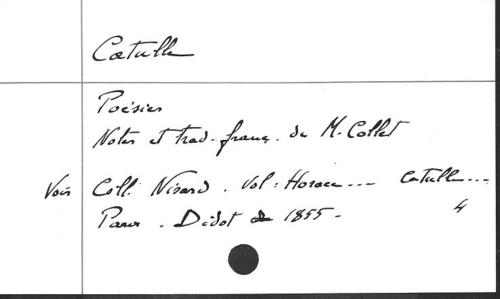 Catulle
Poésies
Notes et trad. franç. de M. Collet
Voir Coll. Nisard. Vol: Horace --- Catulle ---
Paris. Didot 1855 - 4